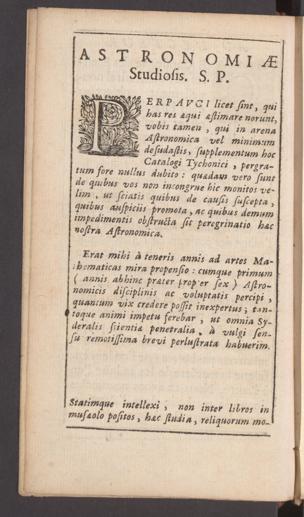 ASTRONOMIÆ
Studiosis. S. P.
PERPAVCI licet sint, qui
has res æqui æstimare norunt,
vobis tamen, qui in arena
Astronomica vel minimum
desudastis, supplementum hoc
Catalogi Tychonici, pergra-
tum fore nullus dubito: quædam vero sunt
de quibus vos non incongrue hic monitos ve-
lim, ut sciatis quibus de causis suscepta,
quibus auspiciis promota, ac quibus demum
impedimentis obstructa sit peregrinatio hæc
nostra Astronomica.
Erat mihi à teneris annis ad artes Ma-
thematicas mira propensio: cumque primum
(annis abhinc præter propter sex) Astro-
nomicis disciplinis ac voluptatis percipi,
quantum vix credere possit inexpertus; tan-
toque animi impetu ferebar, ut omnia Sy-
deralis scientiæ penetralia, à vulgi sen-
su remotissima brevi perlustrata habuerim.
Statimque intellexi, non inter libros in
musæolo positos, hæc studia, reliquorum mo-